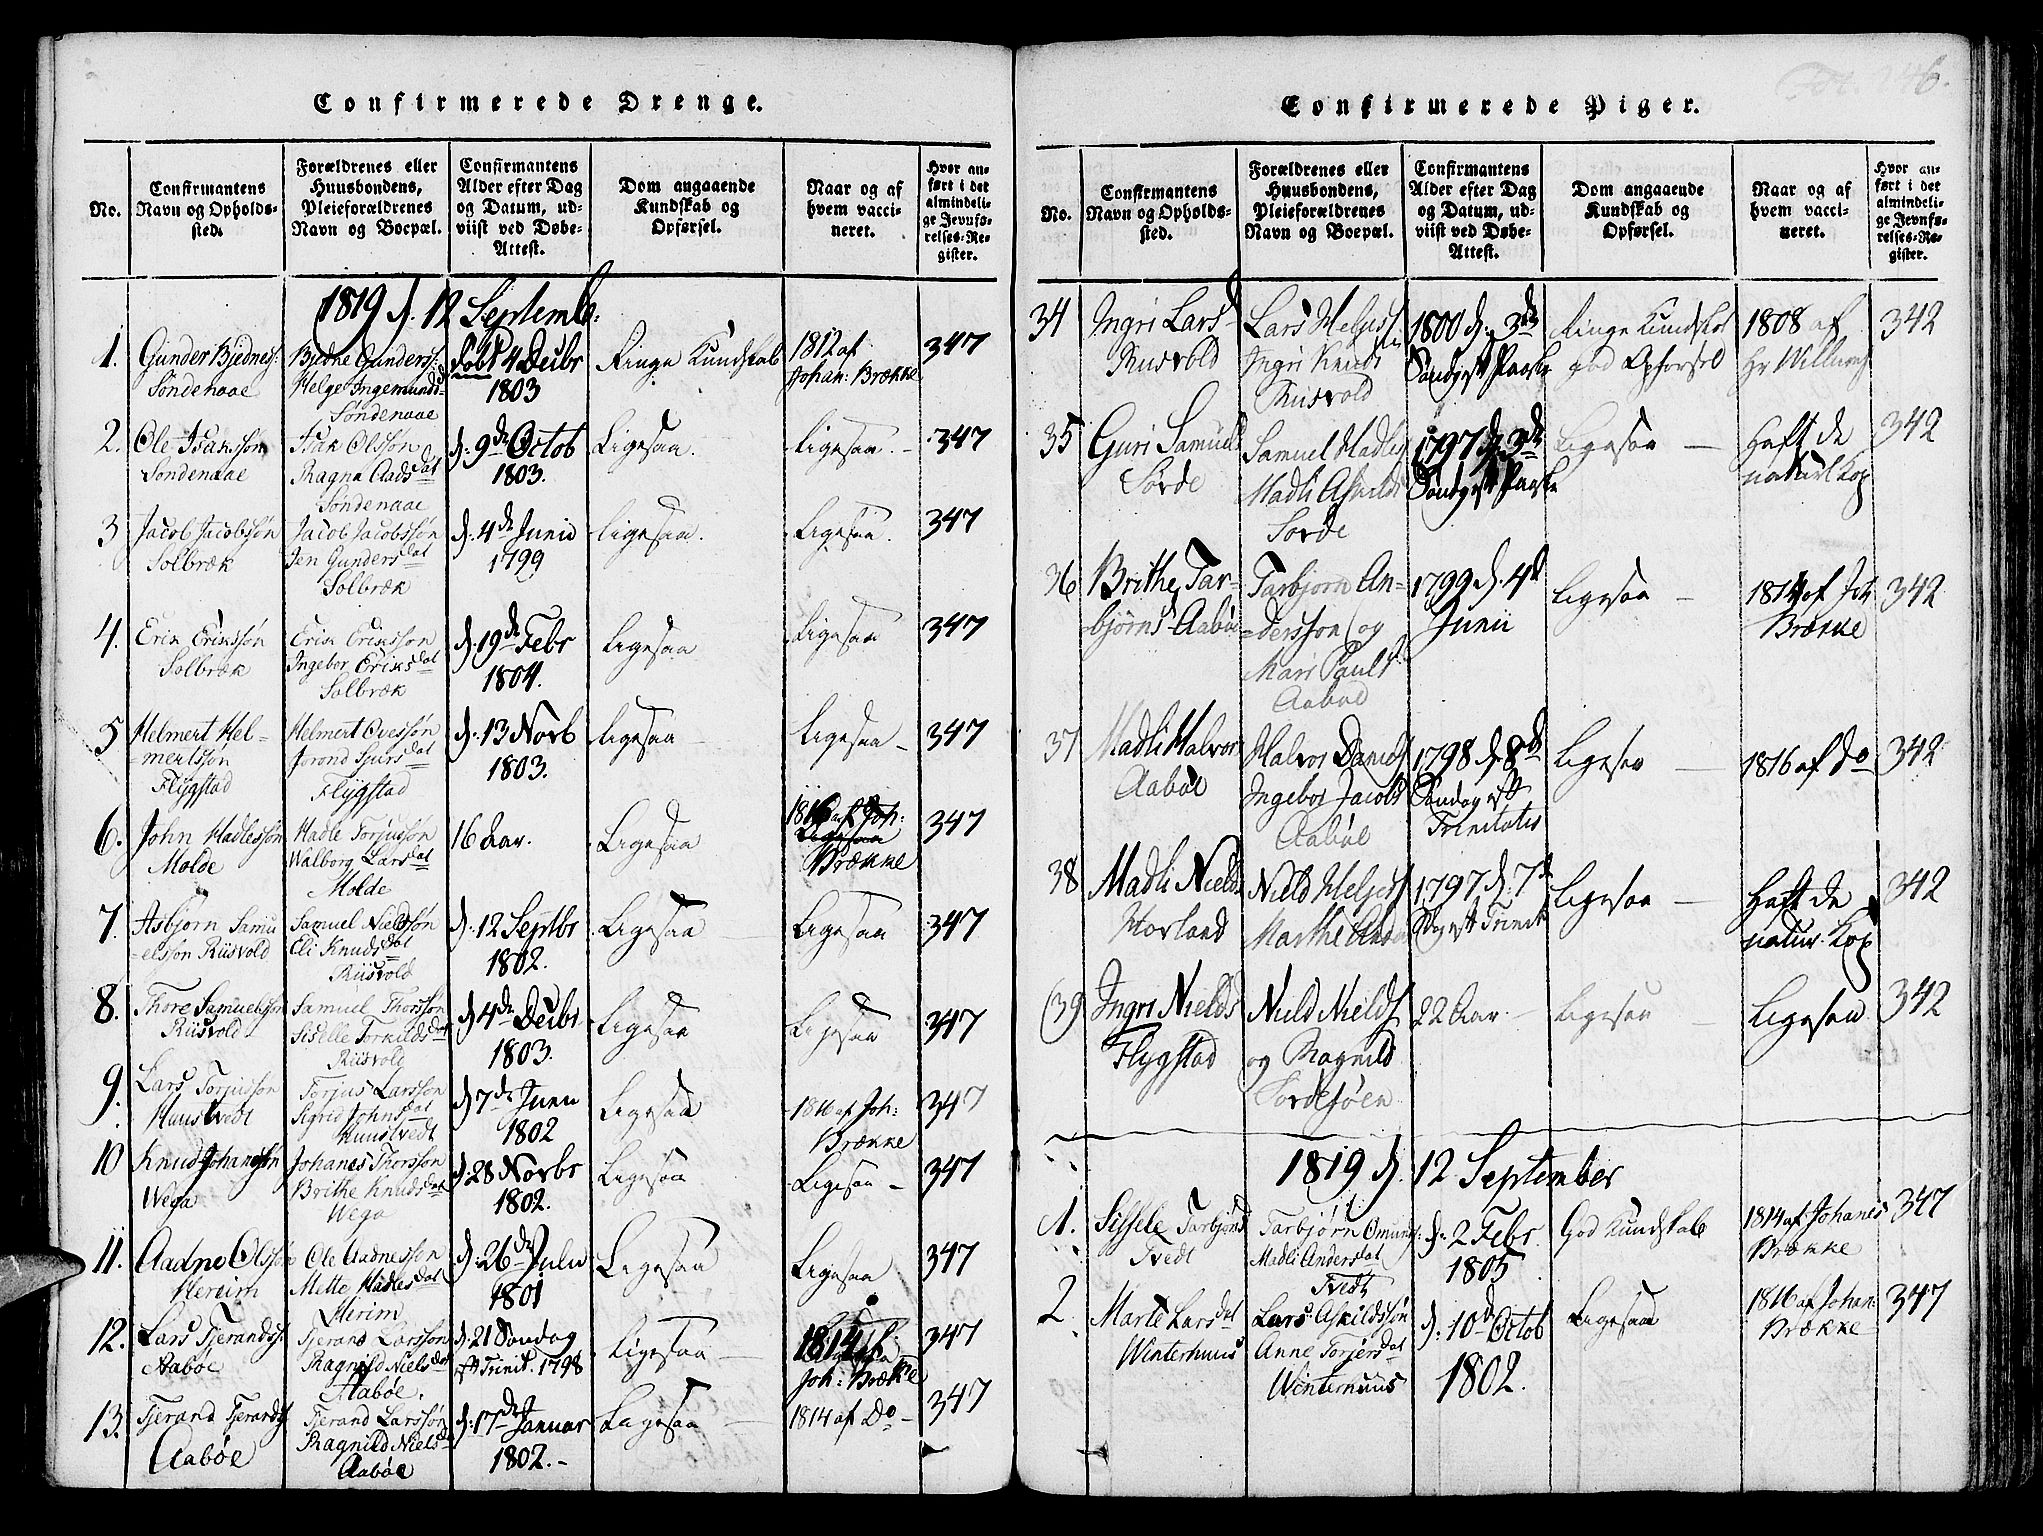 Confirmerede Drenge.
No.
Confirmantens
Navn og Opholds-
sted.
Forældrenes eller
Huusbondens,
Pleieforældrenes
Navn og Boepæl.
Confirmantens
Alder efter Dag
og Datum, ud-
viist ved Døbe-
Attest.
Dom angaaende
Kundskab og
Opførsel.
Naar og af
hvem vacci-
neret.
Hvor an-
ført i det
almindeli-
ge Jevnfø-
relses-Re-
gister.
1819 d. 12 Septembr:
1.
Gunder Bjednes:
Söndenaae
Bjedne Gunders:
Helge Ingemundsd
Söndenaae
Föbt 4 Decbr
1803
Ringe Kundskab
1812 af
Johan: Brække
347
2.
Ole Isaksøn
Söndenaae
Isak Olssøn
Ragna Aadsdat
Söndenaae
d: 9de Octob
1803.
Ligesaa.
Ligesaa.
347
3
Jacob Jacobsøn
Solbræk
Jacob Jacobssøn
Jen Gundersdat
Solbræk
d. 4de Junii
1799
Ligesaa.
Ligesaa.
347
4.
Erik Erikssøn
Solbræk
Erik Erikssøn
Ingebor Eriksdat
Solbræk
d. 19de Febr
1804.
Ligesaa
Ligesaa
347
5
Helmert Hel-
-mertssøn
Flÿgstad
Helmert Ovessøn
Jorond Sjursdat
Flÿgstad
d. 13 Novb
1803.
Ligesaa
Ligesaa
347
6.
John Madlessøn
Molde
Madle Torjussøn
Walborg Larsdat
Molde
16 Aar.
Ligesaa
1816 af Joh:
Brække
347
7.
Asbjørn Samu
-elssøn Riisvold
Samuel Nieldssøn
Eli Knudsdat
Riisvold
d. 12 Septbr
1802.
Ligesaa
Ligesaa
347
8.
Thore Samuelssøn
Riisvold
Samuel Thorssøn
Siselle Torkildsdat
Riisvold
d 4de Decbr
1803.
Ligesaa
Ligesaa
347
9.
Lars Torjussøn
Huustvedt
Torjus Larssøn
Sigrid Johnsdat
Huustvedt
d 7de Junii
1802
Ligesaa
1816 af Joh:
Brække
347
10
Knud Johanssøn
Wega
Johanes Thorssøn
Brithe Knudsdat
Wega
d: 28 Novbr
1802.
Ligesaa
Ligesaa
347
11.
Aadne Olssøn
Hereim
Ole Aadnessøn
Mette Madlesdat
Herim
d: 26de Julii
1801
Ligesaa
Ligesaa
347
12.
Lars Tjerands:
Aabøe
Tjerand Larssøn
Ragnild Nielsdat
Aabøe.
d: 21 Søndag
eft Trinit. 1798
Ligesaa
1814 af
Joh: Brække
347
13.
Tjerand Tjerands
Aabøe
Tjerand Larssøn
Ragnild Nielsd
Aabøe
d: 17de Januar
1802.
Ligesaa
1814 af Do
347
Confirmerede Piger.
No.
Confirmantens
Navn og Opholds-
sted.
Forældrenes eller
Huusbondens,
Pleieforældrenes
Navn og Boepæl.
Confirmantens
Alder efter Dag
og Datum, ud-
viist ved Døbe-
Attest.
Dom angaaende
Kundskab og
Opførsel.
Naar og af
hvem vacci-
neret.
Hvor an-
ført i det
almindeli-
ge Jevnfø-
relses-Re-
gister.
34
Ingri Larsd
Riisvold
Lars Heljess.
Ingri Knuds
Riisvold
1800 d. 3de
Søndag eft Paaske
Ringe Kundskab
god Opførsel
1808 af
342
35
Guri Samuels
Sørde
Samuel Madles
Madli
Sørde
1797 d. 3de
Søndag eft Paaske
Ligesaa
Haft de
naturl. Kop
342
36
Brithe Tar-
bjørnsd Aabøe
Tarbjørn An-
-derssøn og
Mari Pauls
Aabøe
1799 d. 4de
Junii
Ligesaa
1814 af Joh
Brække
342
37
Madli Halvors
Aabøe
Halvor Daniels
Ingebor Jacobs
Aabøe
1798 d. 8de
Søndag eft
Trinitatis
Ligesaa
1816 af Do
342
38
Madli Nields
Hovland
Nield Heljess
Marthe
1797 d. 7de
Søndag eft Trinit
Ligesaa
Haft de
natur. Kop
342
39
Ingri Nields
Flygstad
Nield Nields
og Ragnild
Sørdesøen
22 Aar.
Ligesaa
Ligesaa
342
1819 d. 12 September
1.
Sissele Tarbjørns
Tvedt
Tarbjørn Omunds:
Madli Andersdat
Tvedt
d. 2 Febr
1805
God Kundskab
1814 af Johanes
Brække
347
2.
Marte Larsdat
Winterhuus
Lars Askildssøn
Anne Torjersdat
Winterhuus
d: 10de Octob
1802.
Ligesaa
1816 af Johan:
Brække
347